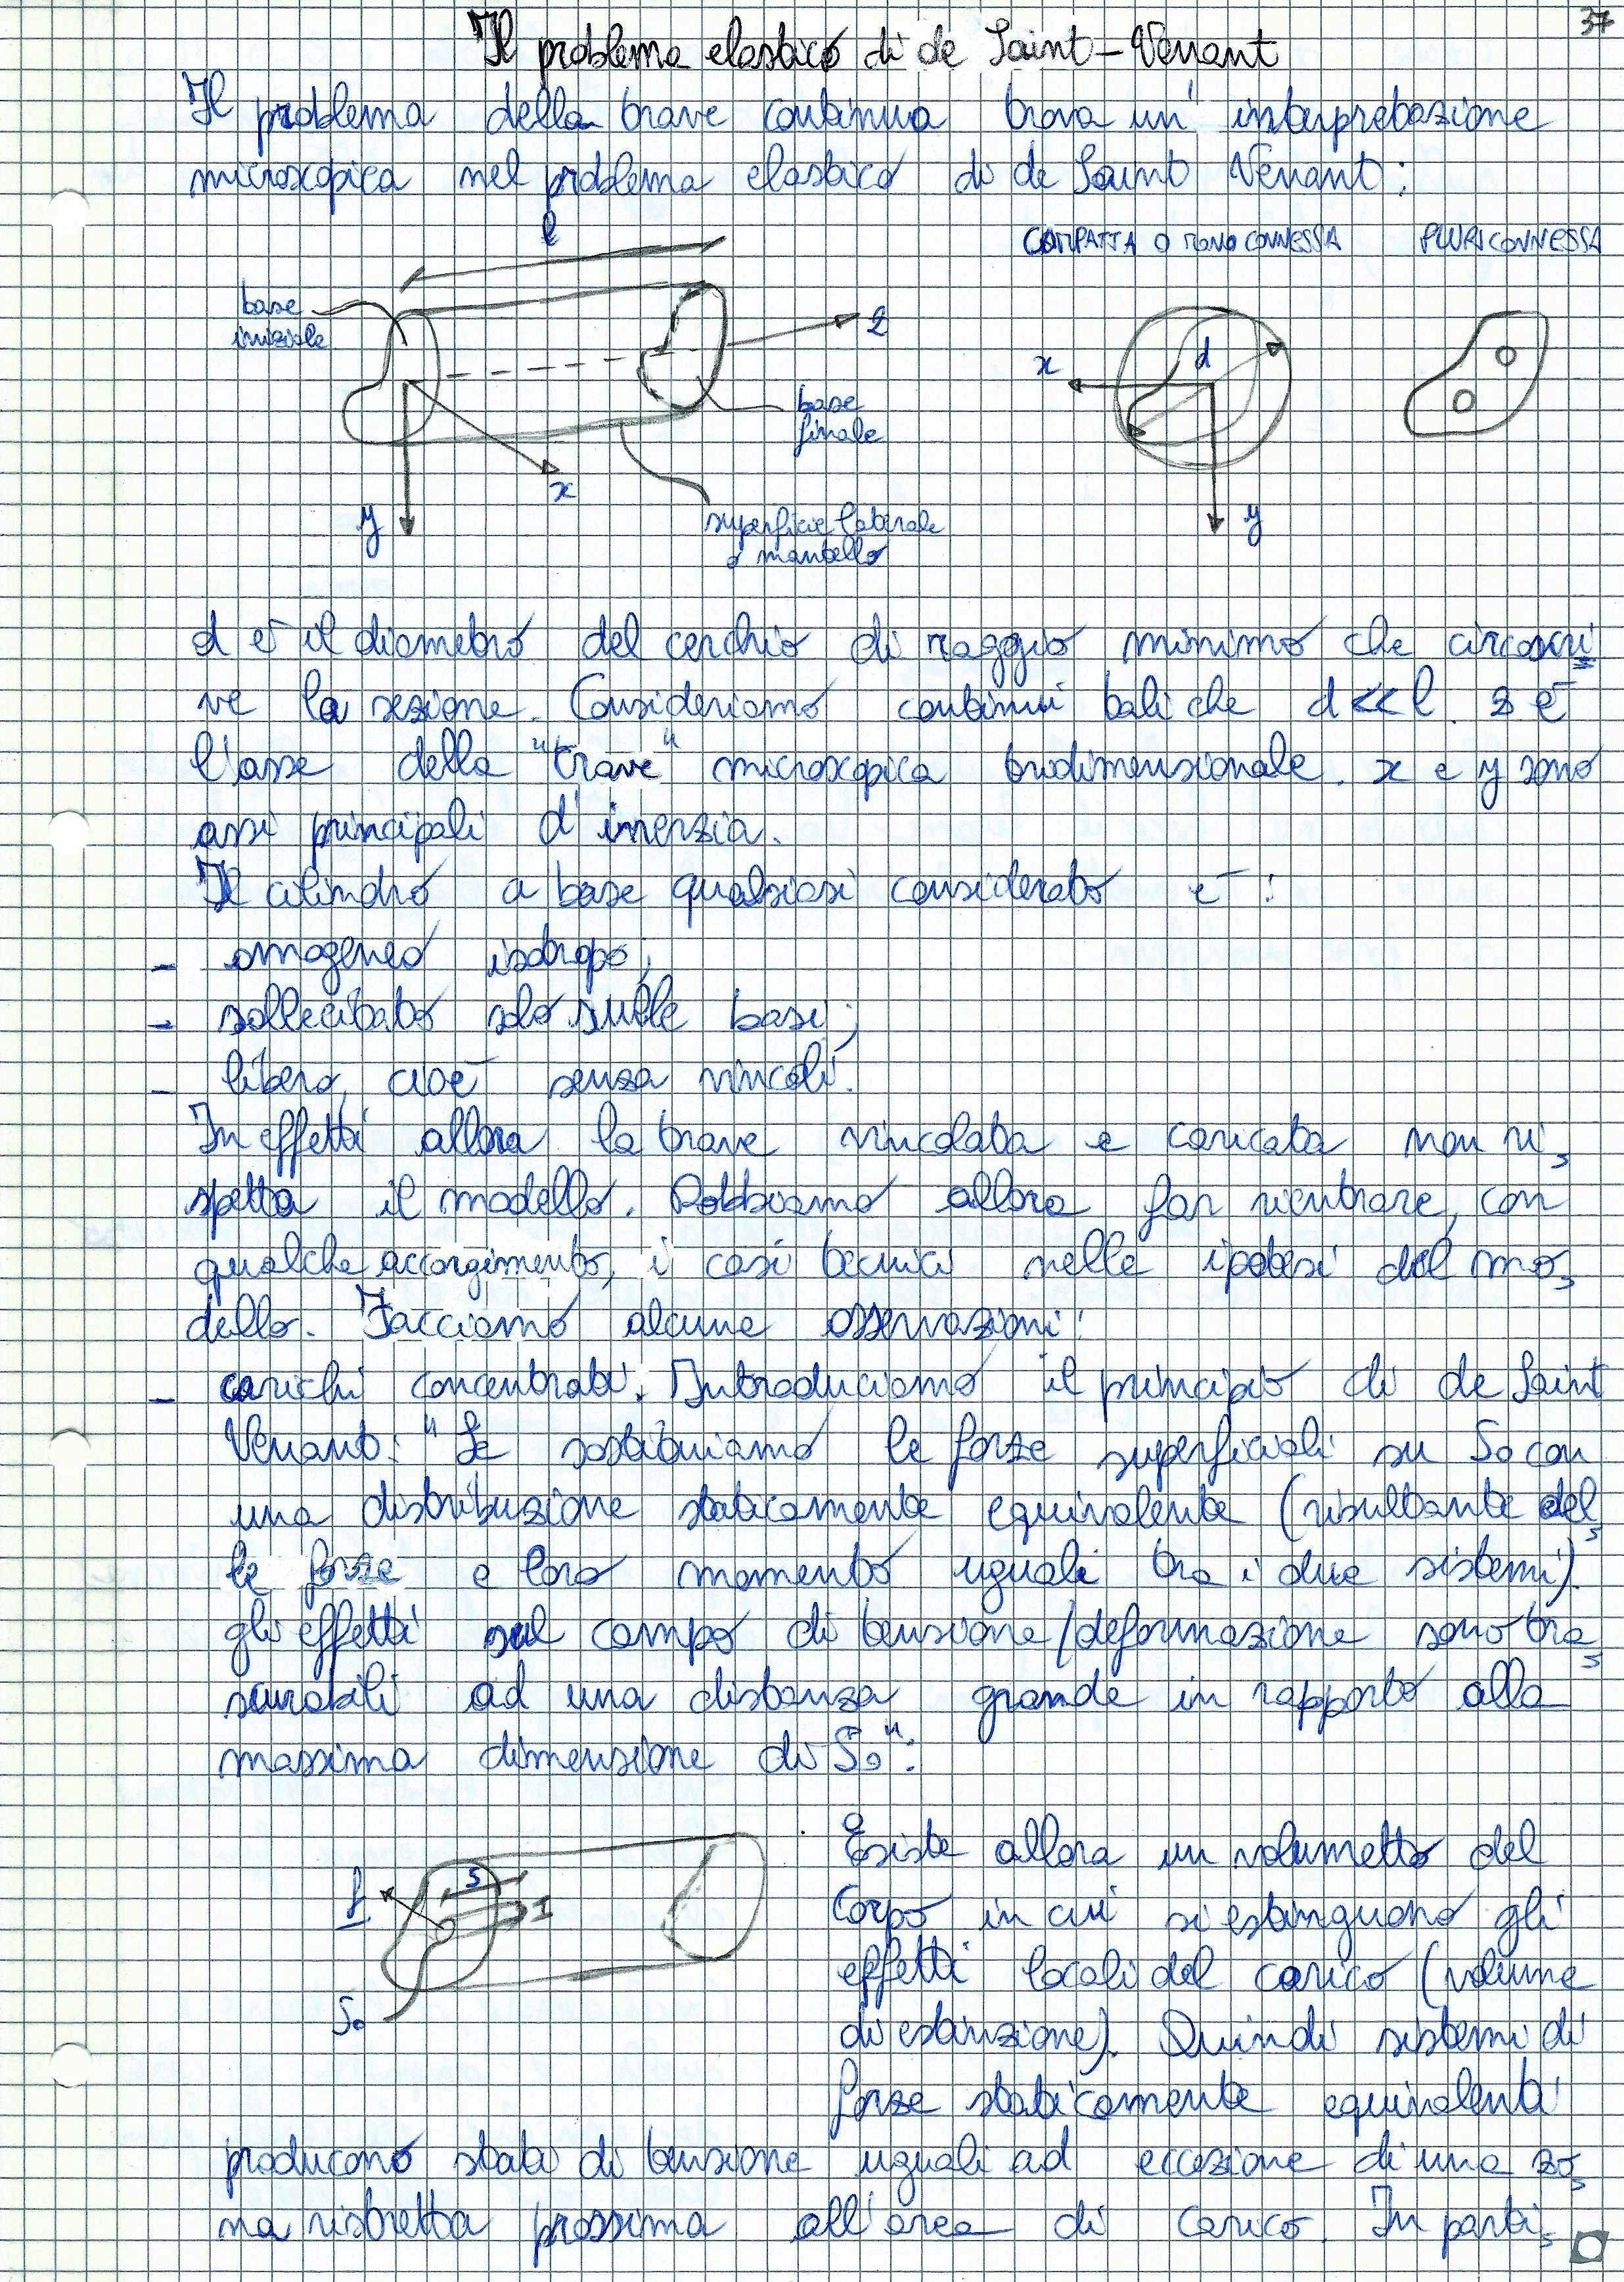 37
Il problema elastico di de Saint-Venant
Il problema della trave continua trova un' interpretazione
microscopica nel problema elastico di de Saint Venant:
l
COMPATTA O MONOCONNESSA PLURICONNESSA
base
iniziale
z
x
d
base
finale
x
y
superficie laterale
o mantello
y
d è il diametro del cerchio di raggio minimo che circoscri
ve la sezione. Consideriamo continui tali che d<<l. z è
l'asse della "trave" microscopica tridimensionale. x e y sono
assi principali d'inerzia.
Il cilindro a base qualsiasi considerato è:
- omogeneo isotropo;
- sollecitato solo sulle basi;
- libero, cioè senza vincoli.
In effetti allora la trave vincolata e caricata non ri
spetta il modello. Dobbiamo allora far rientrare, con
qualche accorgimento, i casi tecnici nelle ipotesi del mo
dello. Facciamo alcune osservazioni:
- carichi concentrati. Introduciamo il principio di de Saint
Venant: "Se sostituiamo le forze superficiali su So con
una distribuzione staticamente equivalente (risultante del
le forze e loro momento uguali tra i due sistemi)
gli effetti sul campo di tensione/deformazione sono tra
scurabili ad una distanza grande in rapporto alla
massima dimensione di So":
f
s
So
Esiste allora un volumetto del
corpo in cui si estinguono gli
effetti locali del carico (volume
di estinzione). Quindi sistemi di
forze staticamente equivalenti
producono stati di tensione uguali ad eccezione di una zo
na ristretta prossima all'area di carico. In parti